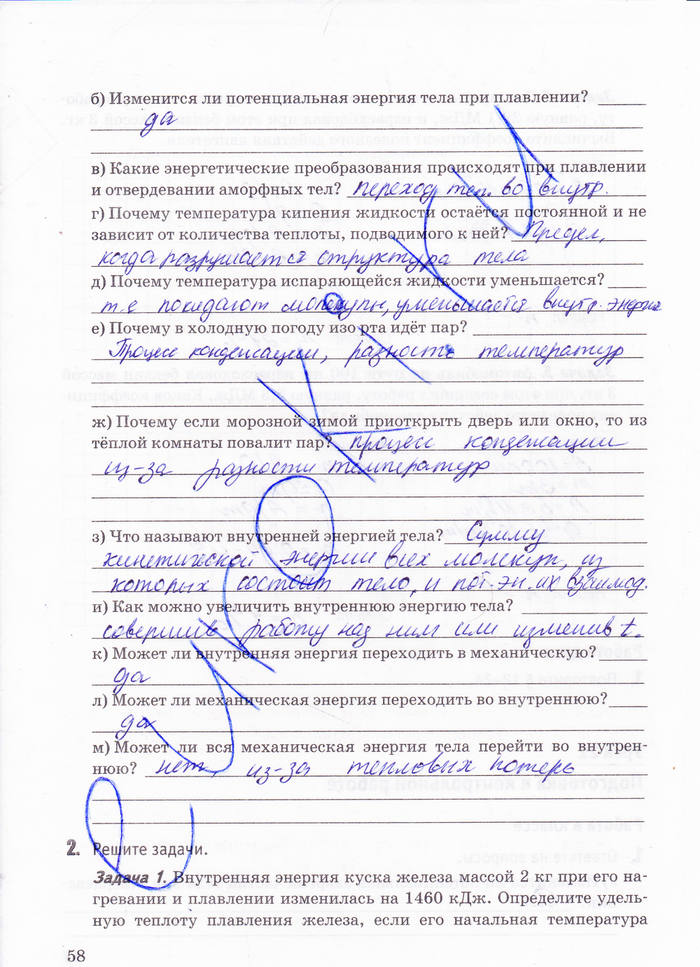 б) Изменится ли потенциальная энергия тела при плавлении?
да
в) Какие энергетические преобразования происходят при плавлении
и отвердевании аморфных тел? переход теп. во внутр.
г) Почему температура кипения жидкости остаётся постоянной и не
зависит от количества теплоты, подводимого к ней? Предел,
когда разрушается структура тела
д) Почему температура испаряющейся жидкости уменьшается?
т.е покидают молекулы, уменьшается внутр. энергия
е) Почему в холодную погоду изо рта идёт пар?
Процесс конденсации, разность температур
ж) Почему если морозной зимой приоткрыть дверь или окно, то из
тёплой комнаты повалит пар? процесс конденсации
из-за разности температур
з) Что называют внутренней энергией тела? Сумму
кинетической энергии всех молекул, из
которых состоит тело, и пот. эн. их взаимод.
и) Как можно увеличить внутреннюю энергию тела?
совершив работу над ним или изменив t.
к) Может ли внутренняя энергия переходить в механическую?
да
л) Может ли механическая энергия переходить во внутреннюю?
да
м) Может ли вся механическая энергия тела перейти во внутрен-
нюю? нет, из-за тепловых потерь
2. Решите задачи.
Задача 1. Внутренняя энергия куска железа массой 2 кг при его на-
гревании и плавлении изменилась на 1460 кДж. Определите удель-
ную теплоту плавления железа, если его начальная температура
58